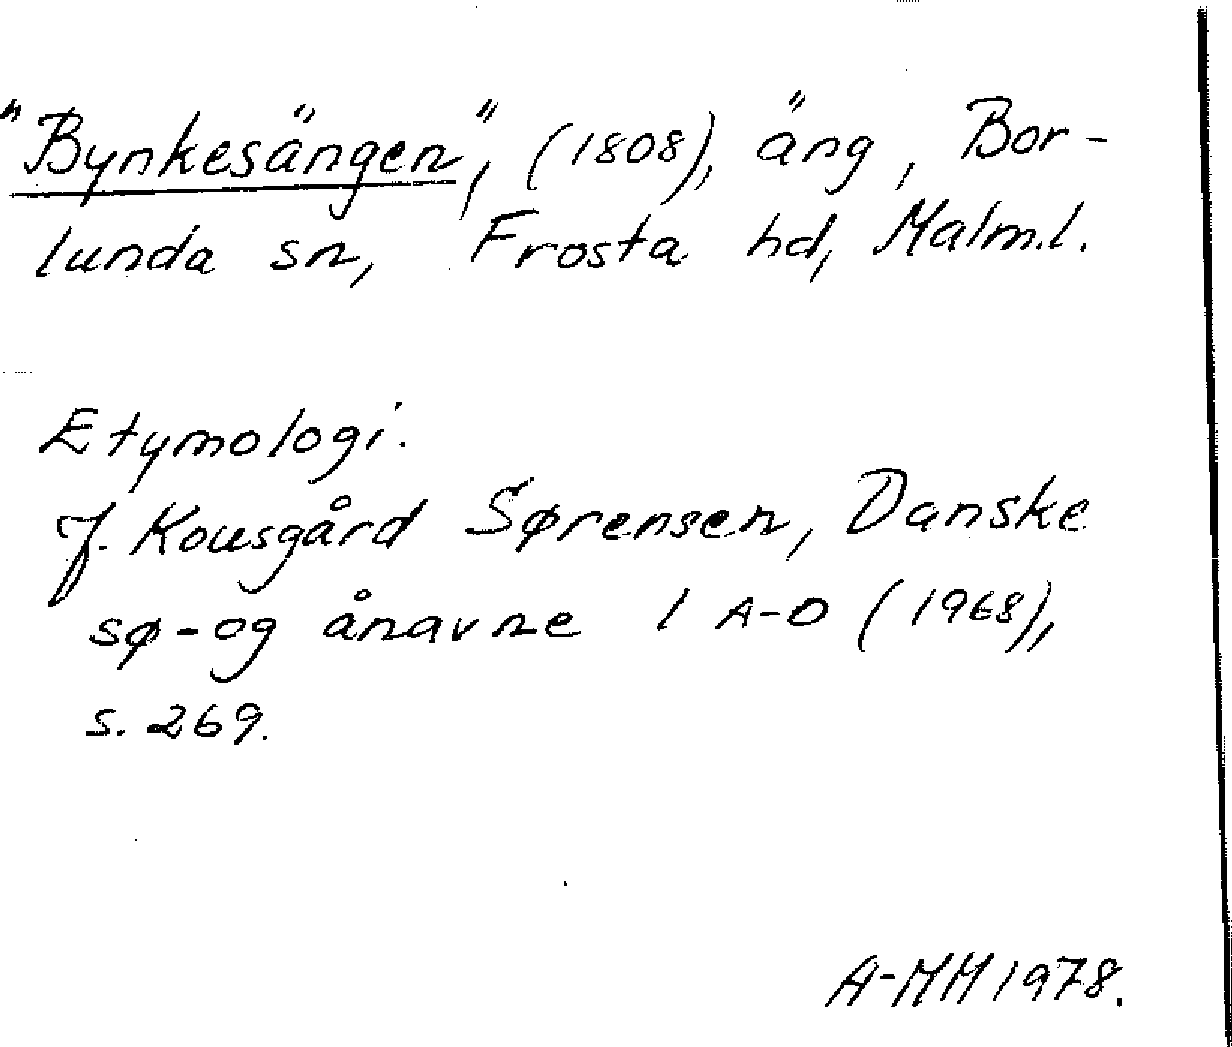 "Bynkesängen", (1808), äng, Bor-
lunda sn, Frosta hd, Malm.l.
Etymologi.
J. Kousgård Sørensen, Danske
sø-og ånavne 1 A-D (1968),
s. 269.
A-MM 1978.